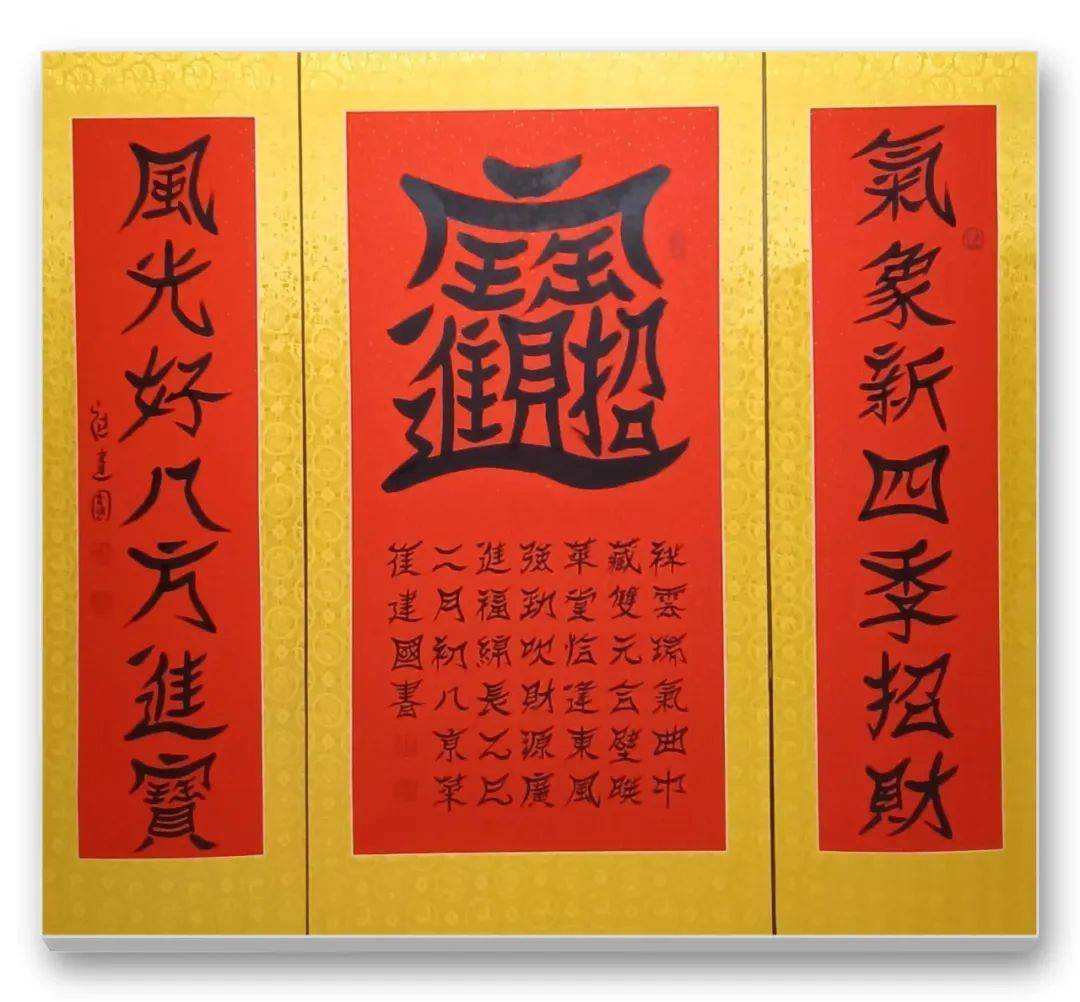 氣象新四季招財
招財進寶
祥雲瑞氣曲中
藏雙元合璧映
華堂恰逢東風
強勁吹財源廣
進福綿長乙巳
二月初八京
崔建國書
風光好八方進寶
崔建國